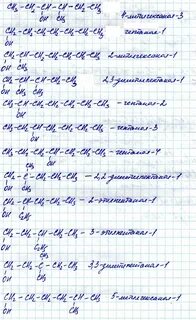 CH₃-CH₂-CH-CH-CH₂-CH₃
OH CH₃ 4-метилгексанол-3
CH₂-CH₂-CH₂-CH₂-CH₂-CH₂-CH₃ гептанол-1
OH
CH₂-CH-CH₂-CH₂-CH₂-CH₃ 2-метилгексанол-1
OH CH₃
CH₂-CH-CH-CH₂-CH₃ 2,3-диметилпентанол-1
OH CH₃ CH₃
CH₃-CH-CH₂-CH₂-CH₂-CH₂-CH₃ -гептанол-2
OH
CH₃-CH₂-CH-CH₂-CH₂-CH₂-CH₃ -гептанол-3
OH
CH₃-CH₂-CH₂-CH-CH₂-CH₂-CH₃ -гептанол-4
OH
CH₃
CH₂-C-CH₂-CH₂-CH₃ -2,2-диметилпентанол-1
OH CH₃
CH₂-CH-CH₂-CH₂-CH₃ -2-этилпентанол-1
OH C₂H₅
CH₂-CH₂-CH-CH₂-CH₃ 3-этилпентанол-1
OH C₂H₅
CH₃
CH₂-CH₂-C-CH₂-CH₃ 3,3-диметилпентанол-1
OH CH₃
CH₂-CH₂-CH₂-CH₂-CH-CH₃ 5-метилгексанол-1
OH CH₃